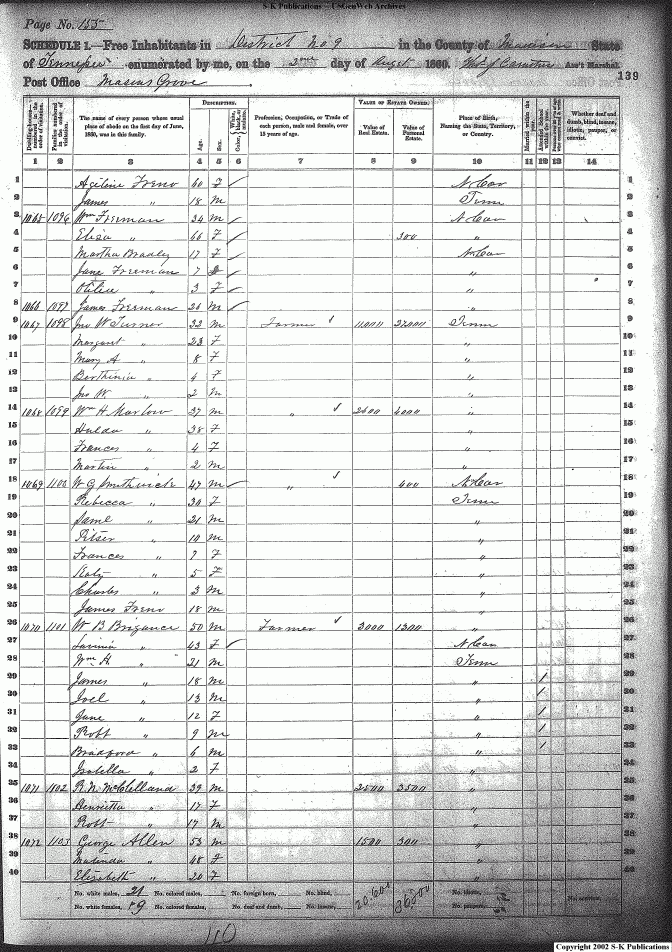 S-K Publications - USGenWeb Archives
Page No. 155
SCHEDULE 1.—Free Inhabitants in District No 9 in the County of Madison State
of Tennessee enumerated by me, on the 2nd day of August 1860. Ass't Marshal.
139
Post Office
DESCRIPTION. VALUE OF ESTATE OWNED.
Dwelling-houses— numbered in the order of visitation. Families numbered in the order of visitation. The name of every person whose usual place of abode on the first day of June, 1860, was in this family. Age. Sex. Color, White, black, or mulatto. Profession, Occupation, or Trade of each person, male and female, over 15 years of age. Value of Real Estate. Value of Personal Estate. Place of Birth, Naming the State, Territory, or Country. Married within the year. Attended School within the year. Whether deaf and dumb, blind, insane, idiotic, pauper, or convict.
1 2 3 4 5 6 7 8 9 10 11 12 13 14
1 60 F N Car 1
2 James " 18 m Tenn 2
3 1065 1096 Wm Freeman 34 m N Car 3
4 Eliza " 66 F 300 " 4
5 Martha Bradley 17 F N Car 5
6 Jane Freeman 7 " 6
7 " 3 F " 7
8 1066 1097 James Freeman 26 m " 8
9 1067 1098 Jno W Turner 32 m Farmer 11000 27000 Tenn 9
10 Margaret " 23 F " 10
11 Mary A " 8 F " 11
12 " 4 F " 12
13 Jno W " 2 m " 13
14 1068 1099 Wm H Marlow 37 m " 2600 4000 " 14
15 Hulda " 38 F " 15
16 Frances " 4 F " 16
17 Martin " 2 m " 17
18 1069 1100 W G Smithwick 47 m " 400 N Car 18
19 Rebecca " 30 F Tenn 19
20 Saml " 21 m " 20
21 " 10 m " 21
22 Frances " 7 F " 22
23 Katy " 5 F " 23
24 Charles " 3 m " 24
25 James 18 m " 25
26 1070 1101 W B Brigance 50 m Farmer 3000 1300 " 26
27 Lavinia " 43 F N Car 27
28 Wm H. " 21 m Tenn 28
29 James " 18 m " 1 29
30 Joel " 13 m " 1 30
31 June " 12 F " 1 31
32 Robt " 9 m " 1 32
33 Bradford " 6 m " 1 33
34 Isabella " 2 F " 34
35 1071 1102 R. N. McClelland 39 m 2500 3500 " 35
36 Henrietta " 17 F " 36
37 Robt " 17 m " 37
38 1072 1103 George Allen 53 m 1500 300 " 38
39 Malinda " 48 F " 39
40 Elizabeth " 20 F " 40
No. white males, 21 No. colored males, No. foreign born, No. blind, 20,600 36800 No. idiotic, No. convicts,
No. white females, 19 No. colored females, No. deaf and dumb, No. insane, No. paupers,
110
Copyright 2002 S-K Publications